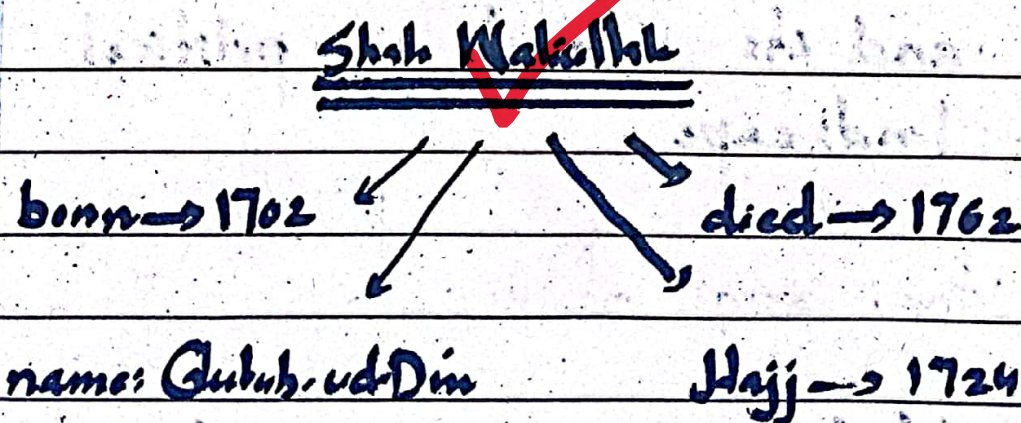 Shah Waliullah
born → 1702 died → 1762
name: Qutub-ud-Din Hajj → 1724